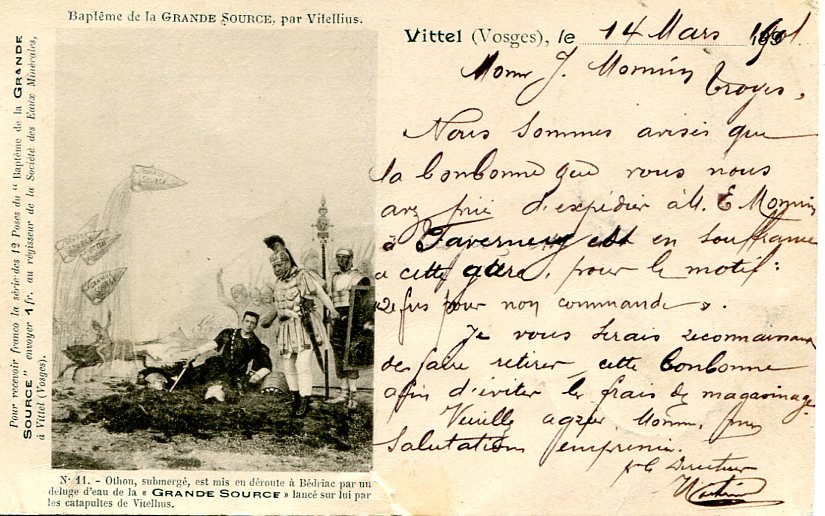 Baptême de la GRANDE SOURCE, par Vitellius.
Pour recevoir franco la série des 12 Poses du "Baptême de la GRANDE
SOURCE" envoyer 1 fr. au régisseur de la Société des Eaux Minérales,
à Vittel (Vosges).
GRANDE SOURCE
GRANDE SOURCE
N° 11. - Othon, submergé, est mis en déroute à Bédriac par un
deluge d'eau de la « GRANDE SOURCE » lancé sur lui par
les catapultes de Vitellius.
Vittel (Vosges), le 14 Mars 1901.
Monr J. Monnin
Troyes,
Nous sommes avisés que
la bonbonne que vous nous
avz prié d'expédier à M. E Monnin
à Taverney est en souffrance
a cette gare, pour le motif :
« Refus pour non commande ».
Je vous serais reconnaissant
de faire retirer cette bonbonne
afin d'éviter les frais de magasinage.
Veuillez agréer, Monsr, mes
salutations empressées.
p le Directeur